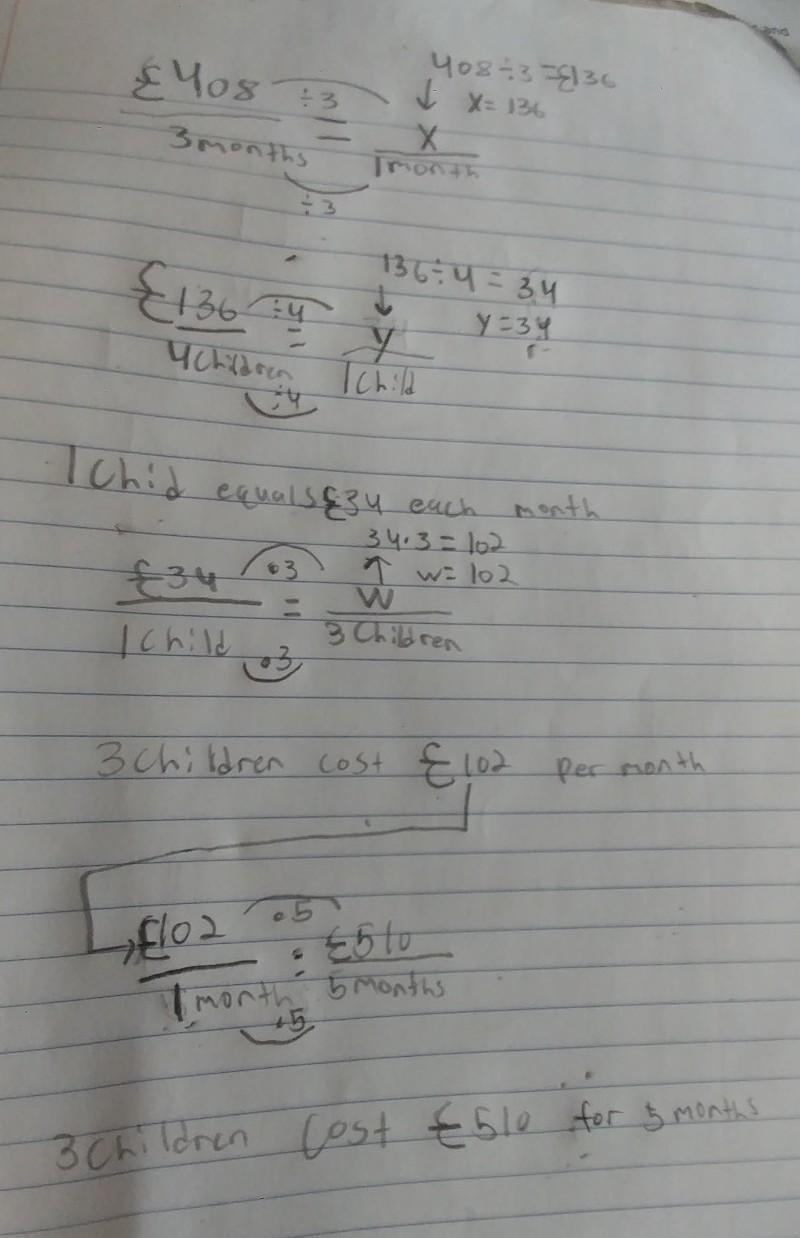 408÷3=£136
£408 ÷3 ↓ X=136
3 months = X
1 month
÷3
136÷4=34
£136 ÷4 ↓ Y=34
4 Children = Y
1 Child
÷4
1 Child equals £34 each month
34·3=102
£34 ·3 ↑ W=102
1 Child = W
3 Children
·3
3 Children cost £102 per month
£102 ·5 = £510
1 month 5 months
·5
3 Children Cost £510 for 5 months